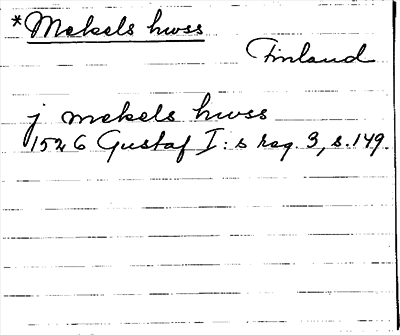 *Mekels hwss
Finland
j mekels hwss
1526 Gustaf I:s reg. 3, s. 149.